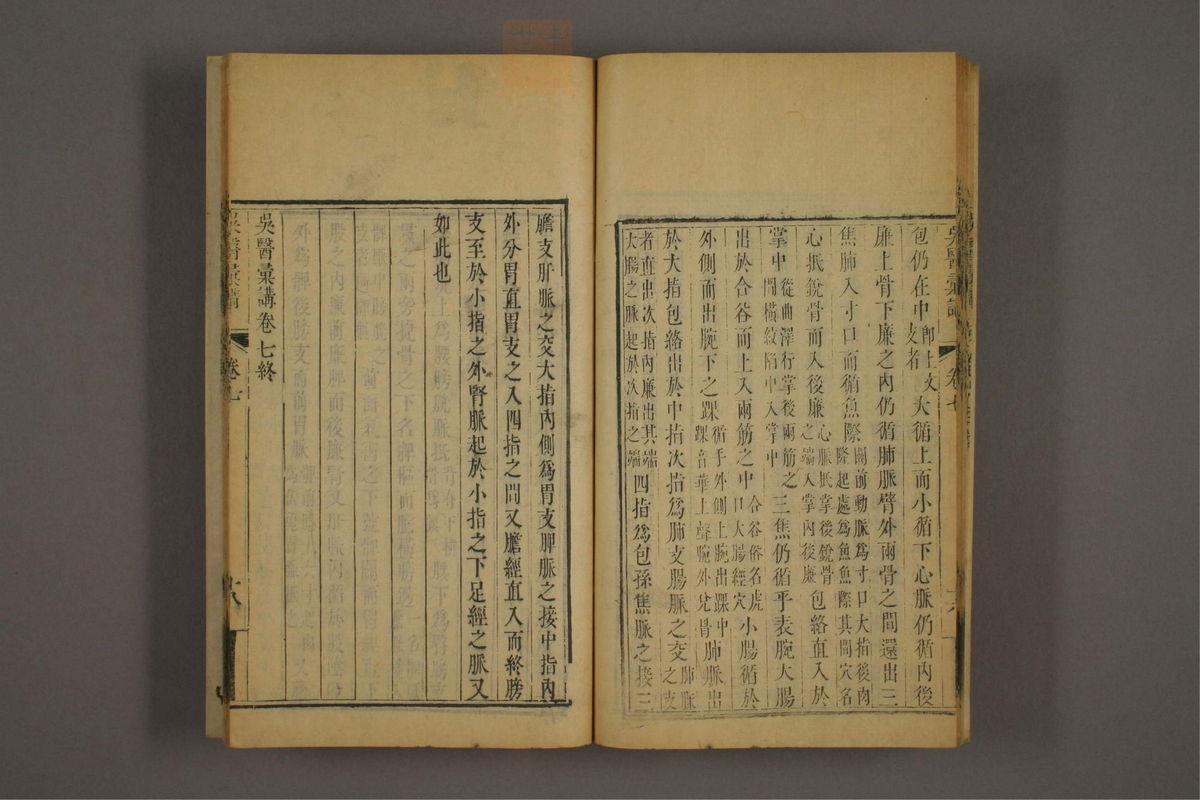 包仍在中即上文支者大循上而小循下心脈仍循內後
廉上骨下廉之內仍循肺脈臂外兩骨之間還出三
焦肺入寸口而循魚際關前動脈爲寸口大指後肉隆起處爲魚魚際其間穴名
心抵銳骨而入後廉心脈抵掌後銳骨之端入掌內後廉包絡直入於
掌中從曲澤行掌後兩筋之間橫紋陷中入掌中三焦仍循乎表腕大腸
出於合谷而上入兩筋之中合谷俗名虎口大腸經穴小腸循於
外側而出腕下之踝循手外側上腕出踝中踝音華上聲腕外兌骨肺脈出
於大指包絡出於中指次指爲肺支腸脈之交肺脈之支
者直出次指內廉出其端大腸之脈起於次指之端四指爲包孫焦脈之接三
吳醫彙講
卷七
膽支肝脈之交大指內側爲胃支脾脈之接中指內
外分胃直胃支之入四指之間又膽經直入而終膀
支至於小指之外腎脈起於小指之下足經之脈又
如此也
吳醫彙講卷七終
吳醫彙講
卷七